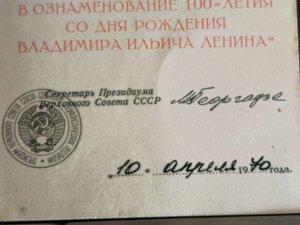 В ОЗНАМЕНОВАНИЕ 100-ЛЕТИЯ
СО ДНЯ РОЖДЕНИЯ
ВЛАДИМИРА ИЛЬИЧА ЛЕНИНА"
Секретарь Президиума
Верховного Совета СССР МГеоргадзе
"10" апреля 1970 года.